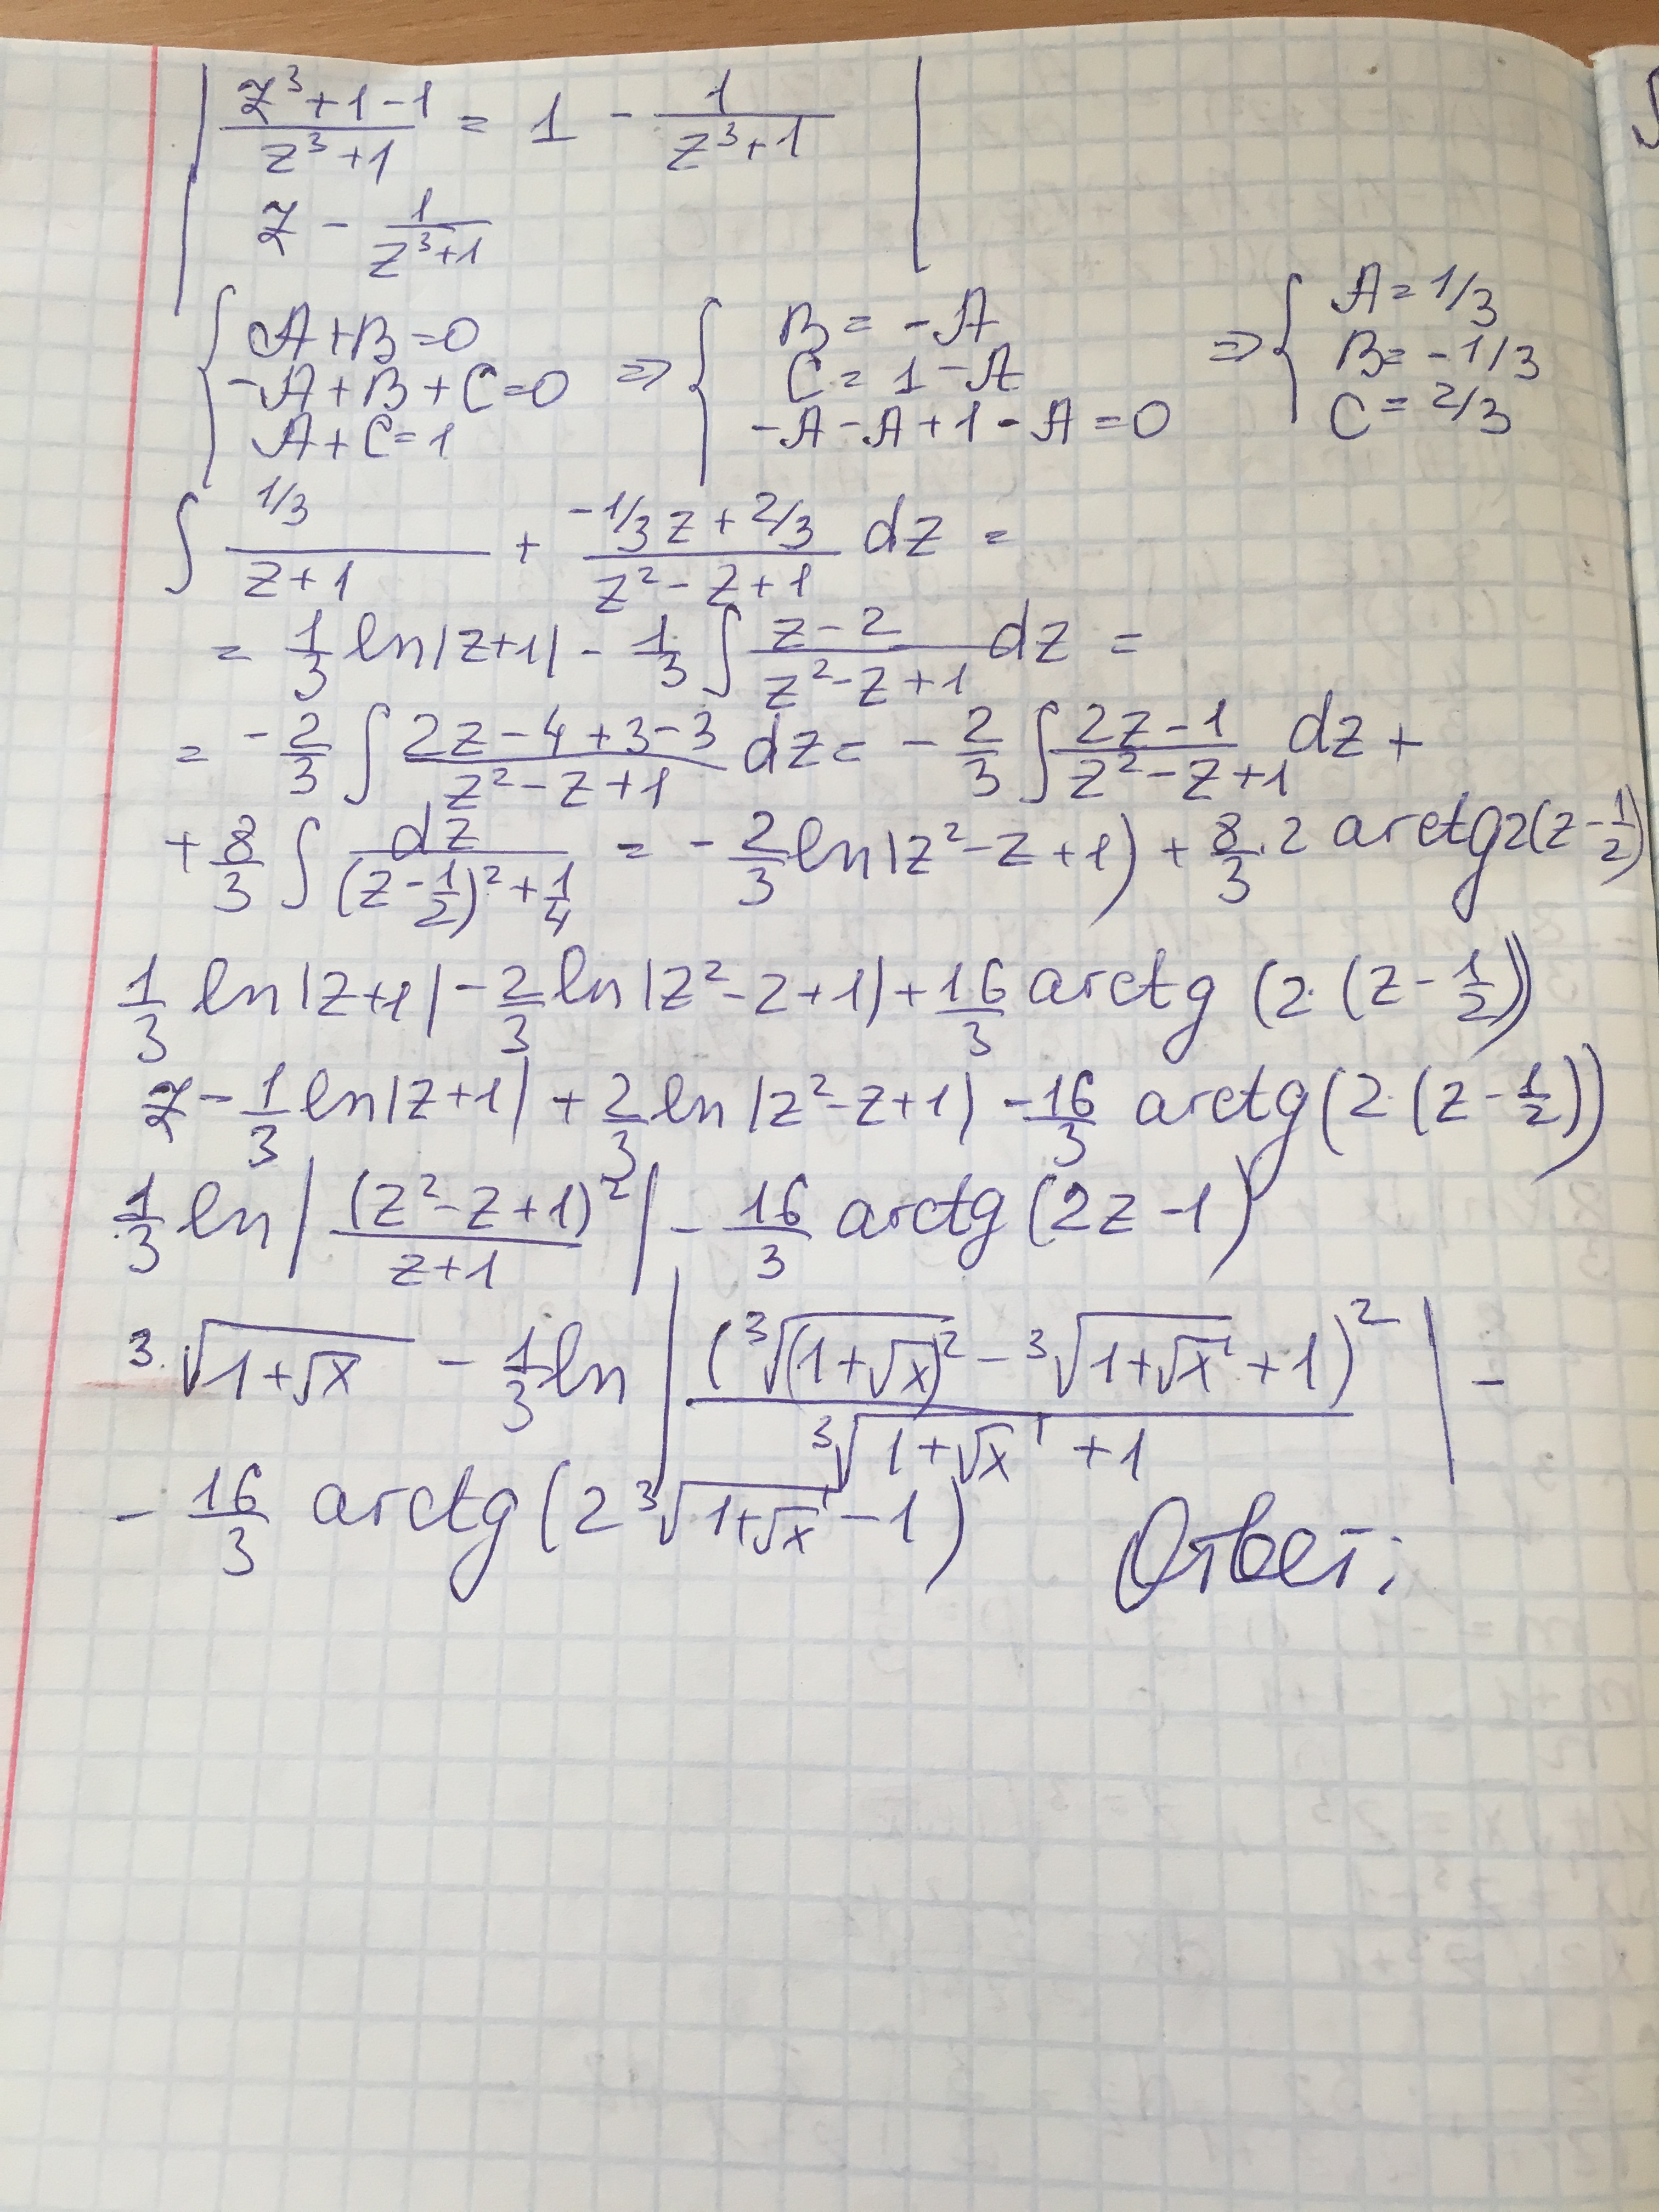 | (z³+1-1)/(z³+1) = 1 - 1/(z³+1) |
z - 1/(z³+1)
{ A+B=0 ; -A+B+C=0 ; A+C=1 ⇒ { B=-A ; C=1-A ; -A-A+1-A=0 ⇒ { A=1/3 ; B=-1/3 ; C=2/3
∫ (1/3)/(z+1) + (-1/3 z + 2/3)/(z²-z+1) dz =
= 1/3 ln|z+1| - 1/3 ∫ (z-2)/(z²-z+1) dz =
= -2/3 ∫ (2z-4+3-3)/(z²-z+1) dz = -2/3 ∫ (2z-1)/(z²-z+1) dz +
+ 8/3 ∫ dz/((z-1/2)²+1/4) = -2/3 ln|z²-z+1) + 8/3·2 arctg2(z-1/2)
1/3 ln|z+1| - 2/3 ln|z²-z+1| + 16/3 arctg (2·(z-1/2))
z - 1/3 ln|z+1| + 2/3 ln|z²-z+1| - 16/3 arctg(2·(z-1/2))
1/3 ln| (z²-z+1)²/(z+1) | - 16/3 arctg(2z-1)
³√(1+√x) - 1/3 ln | (³√(1+√x)² - ³√(1+√x) + 1)² / (³√(1+√x) + 1) | -
- 16/3 arctg(2 ³√(1+√x) - 1) Ответ: